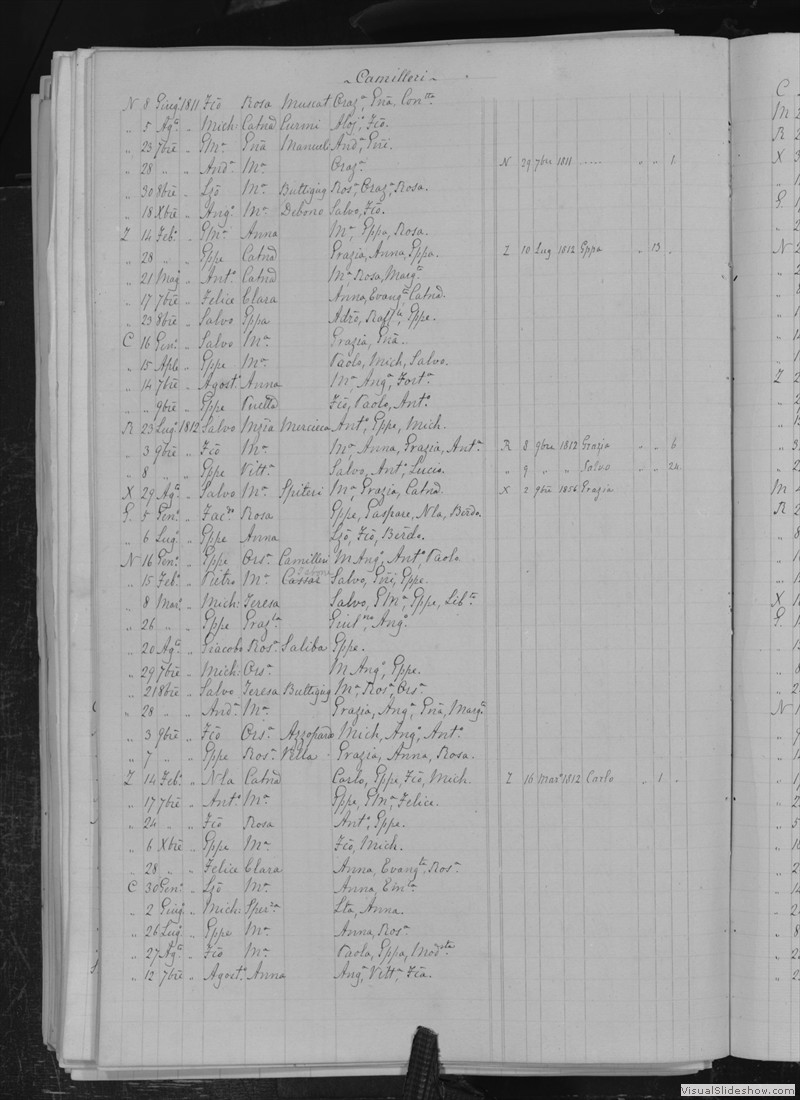 Camilleri
N 8 Giug° 1811 Fcō Rosa Muscat Grazª, Enā, Conᵗᵗᵃ
„ 5 Agᵗᵒ „ Mich: Catnā Curmi Aloj°, Fcō.
„ 23 7bre „ Emª Enā Manuel Andª, Enē.
„ 28 „ „ Andª Mª Grazª N 29 7bre 1811 ..... „ „ 1.
„ 30 8bre „ Lzō Mª Buttigieg Rosª, Grazª, Rosa.
„ 18 Xbre „ Ang° Mª Debono Salvo, Fcō.
Z 14 Feb° „ Emª Anna Mª, Eppa, Rosa.
„ 28 „ „ Gppe Catnā Grazia, Anna, Eppa. Z 10 Lug 1812 Eppa „ 13 „
„ 21 Mag° „ Ant° Catnā Mª Rosa, Margᵗᵃ
„ 17 7bre „ Felice Clara Anna, Evangᵗᵃ Catnā.
„ 23 8bre „ Salvo Eppa Gppe.
C 16 Gen° „ Salvo Mª Grazia, Enā.
„ 15 Aple „ Gppe Mª Paolo, Mich, Salvo.
„ 14 7bre „ Agost° Anna Mª, Angª, Fortª
„ „ 9bre „ Gppe Fcō, Paolo, Ant°
R 23 Lug° 1812 Salvo Mzia Mercieca Ant°, Gppe, Mich.
„ 3 9bre „ Fcō Mª Mª Anna, Grazia, Antª R 8 9bre 1812 Grazia „ „ 6
„ 8 „ „ Gppe Vittª Salvo, Ant°, Lucia. „ 9 „ „ Salvo „ „ 24.
X 29 Agᵗᵒ „ Salvo Mª Spiteri Mª Grazia, Catnā. X 2 9bre 1856 Grazia
G. 5 Gen° „ Rosa Gppe, Gaspare, Nla, Berdo.
„ 6 Lug° „ Gppe Anna Lzō, Fcō, Berdo.
N 16 Gen° „ Gppe Orsª Camilleri M Ang°, Ant° Paolo
„ 15 Feb° „ Pietro Mª Cassar Salvo, Enē, Gppe.
„ 8 Mar° „ Mich: Teresa Salvo, Emª, Gppe, Libᵗᵃ
„ 26 „ „ Gppe Grazᵗᵃ Ang°
„ 20 Agᵗᵒ „ Giacobo Rosª Saliba Gppe.
„ 29 7bre „ Mich: Orsª M Ang°, Gppe.
„ 21 8bre „ Salvo Teresa Buttigieg Mª, Rosª, Orsª
„ 28 „ „ Andª Mª Grazia, Angª, Enā, Margᵗᵃ
„ 3 9bre „ Fcō Orsª Azzopardi Mich, Ang°, Ant°
„ 7 „ „ Gppe Rosª Vella Grazia, Anna, Rosa.
Z 14 Feb° „ Nla Catnā Carlo, Gppe, Fcō, Mich. Z 16 Mar° 1812 Carlo „ 1 „
„ 17 7bre „ Ant° Mª Gppe, Emª, Felice.
„ 24 „ „ Fcō Rosa Ant°, Gppe.
„ 6 Xbre „ Gppe Mª Fcō, Mich.
„ 28 „ „ Felice Clara Anna, Evangᵗᵃ, Rosª
C 30 Gen° „ Lzō Mª Anna,
„ 2 Giug° „ Mich: Sperᶻᵃ Lta, Anna.
„ 26 Lug° „ Gppe Mª Anna, Rosª
„ 27 Agᵗᵒ „ Fcō Mª Paola, Eppa, Modᵗᵃ
„ 12 7bre „ Agost° Anna Angª, Vittª, Fcā.
VisualSlideshow.com